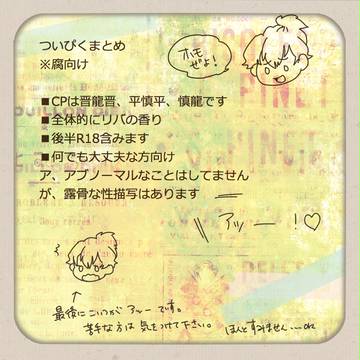 ついぴくまとめ
※腐向け
ホモ
ぜよ!
■CPは晋龍晋、平慎平、慎龍です
■全体的にリバの香り
■後半R18含みます
■何でも大丈夫な方向け
ア、アブノーマルなことはしてません
が、露骨な性描写はあります
アッー!♡
最後にこいつがアッーです。
苦手な方は気をつけて下さい。
ほんとすみません……orz